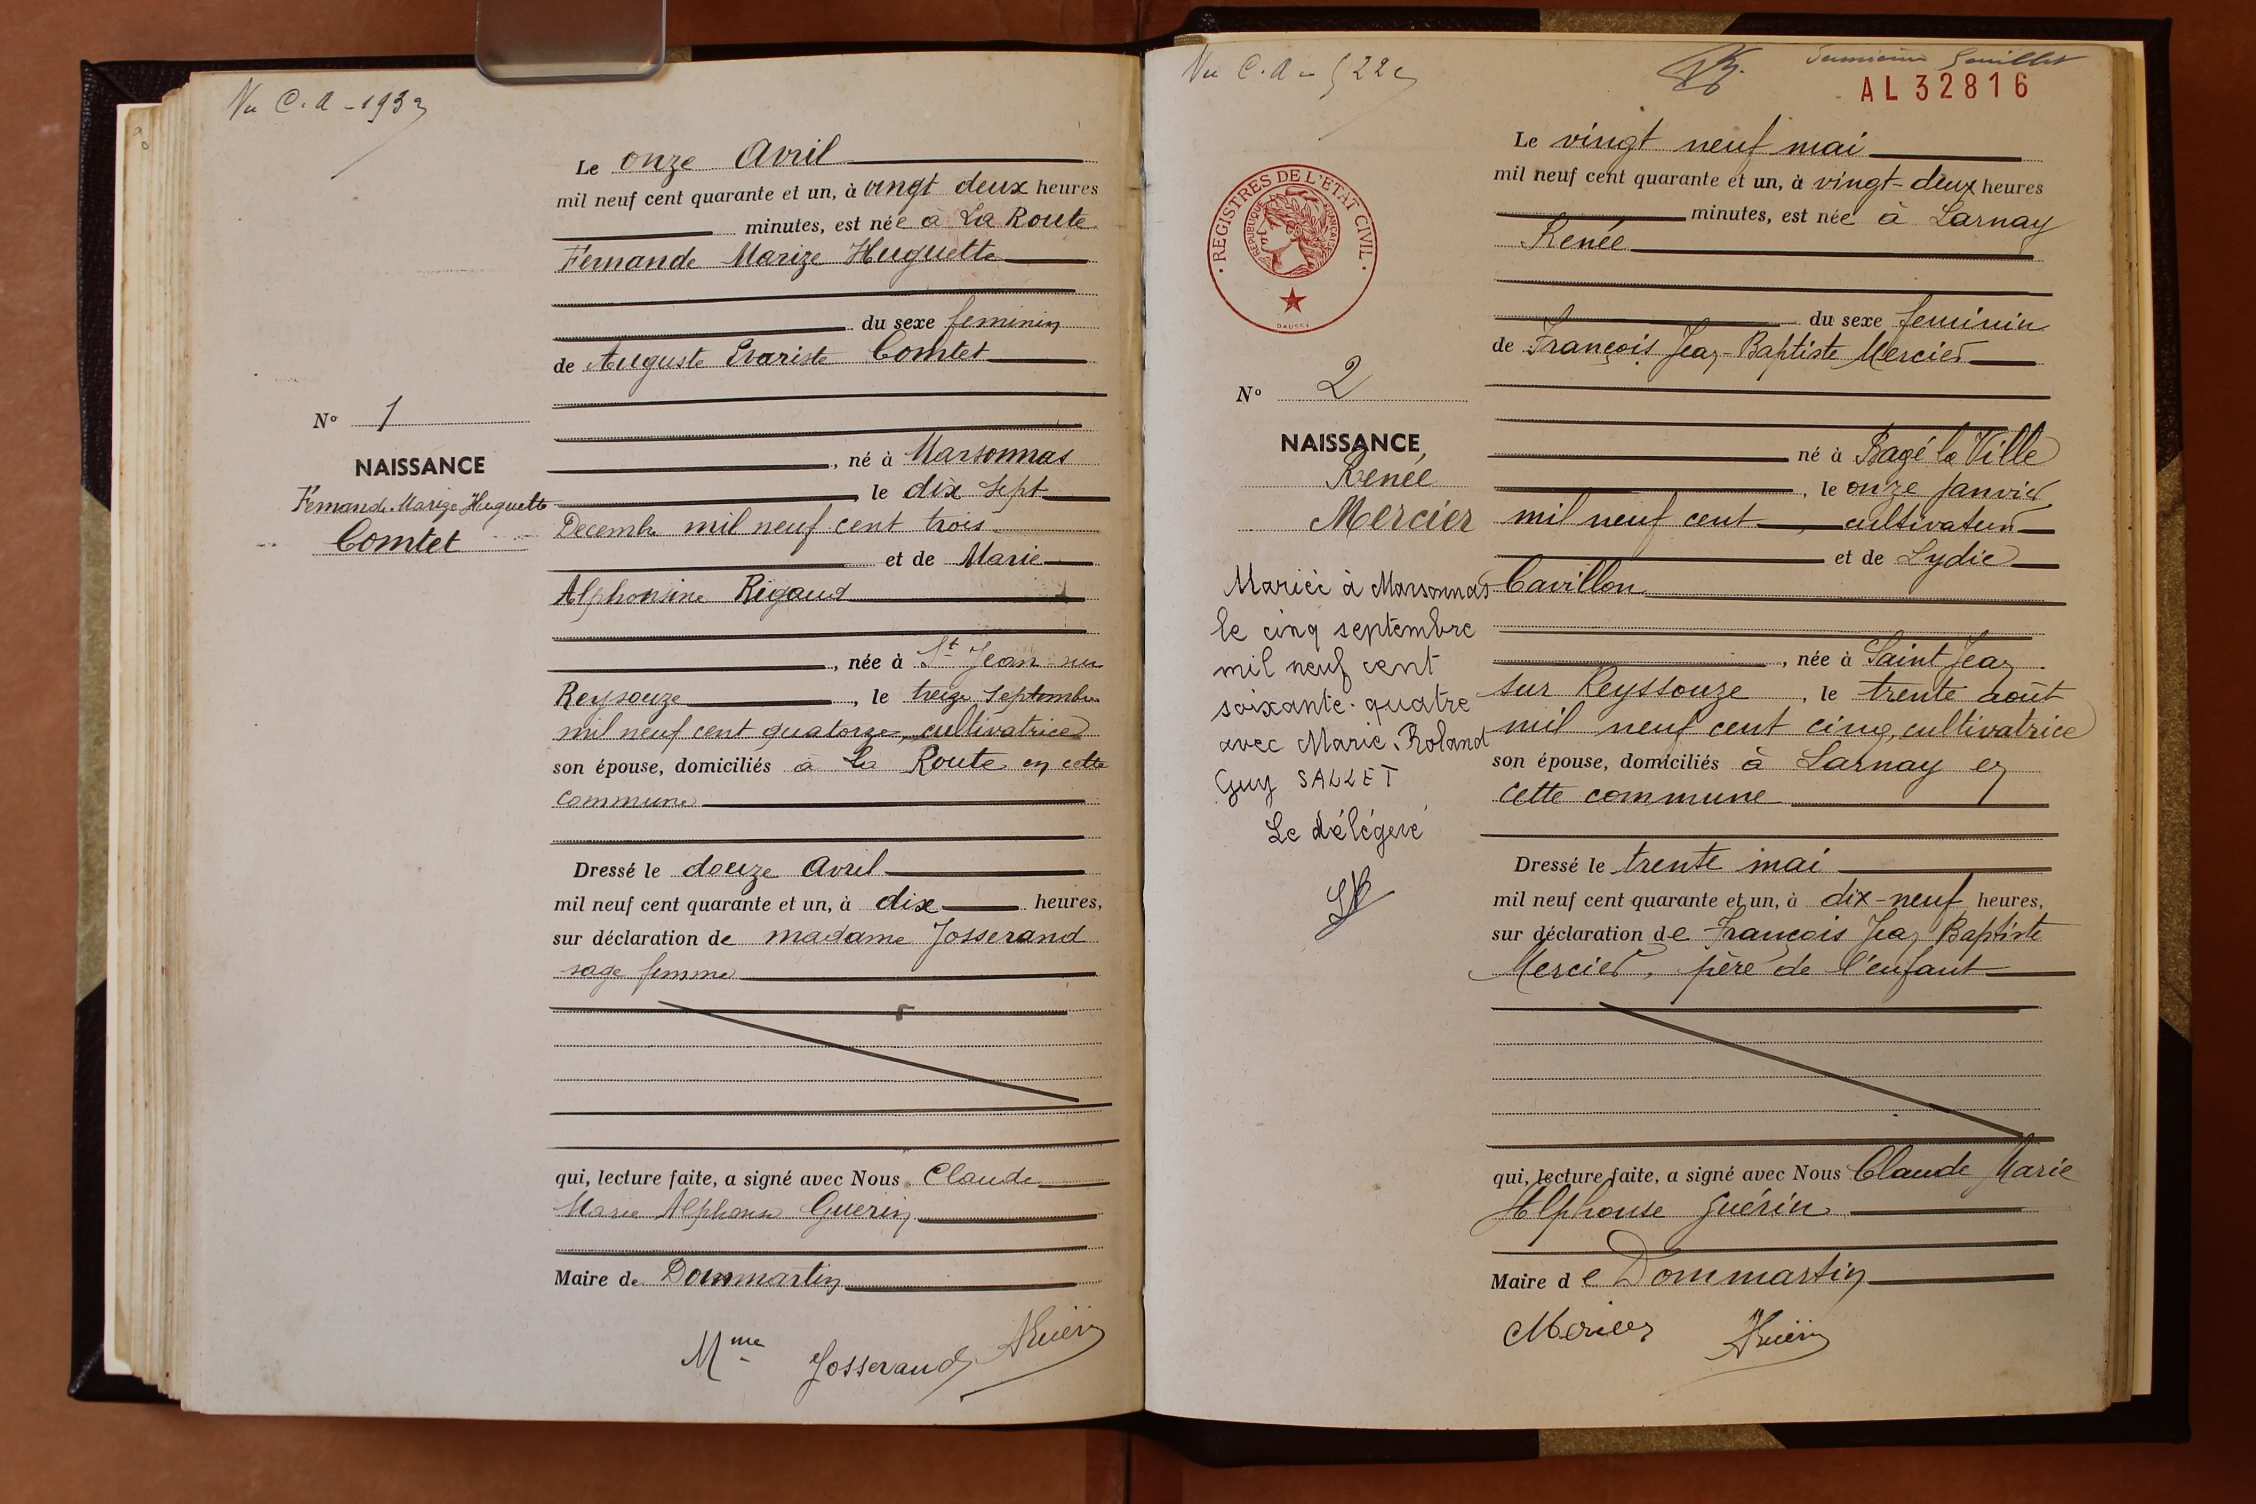 Vu C.A - 193
Le onze Avril
mil neuf cent quarante et un, à vingt deux heures
minutes, est née à La Route
Fernande Marize Huguette
du sexe feminin
de Auguste Evariste Comtet
N° 1
, né à Marsonnas
NAISSANCE
, le dix sept
Fernande Marize Huguette
Decembre mil neuf cent trois
Comtet
et de Marie
Alphonsine Rigaud
, née à St Jean sur
Reysouze , le treize Septembre
mil neuf cent quatorze, cultivatrice
son épouse, domiciliés à La Route en cette
commune
Dressé le douze Avril
mil neuf cent quarante et un, à dix heures,
sur déclaration de madame Josserand
sage femme
qui, lecture faite, a signé avec Nous Claude
Marie Alphonse Guerin
Maire de Dommartin
Mme Josserand AGuérin
Vu C.A - 522
Feuillet
AL32816
Le vingt neuf mai
mil neuf cent quarante et un, à vingt-deux heures
minutes, est née à Larnay
Renée
du sexe feminin
de François Jean-Baptiste Mercier
REGISTRES DE L'ETAT CIVIL
REPUBLIQUE FRANÇAISE
N° 2
né à Bagé la Ville
NAISSANCE
Renée
, le onze janvier
Mercier
mil neuf cent, cultivateur
et de Lydie
Cavillon
Mariée à Marsonnas
le cinq septembre
mil neuf cent
soixante-quatre
avec Marie-Roland
Guy SALLET
Le délégué
, née à Saint Jean
sur Reyssouze , le trente août
mil neuf cent cinq, cultivatrice
son épouse, domiciliés à Larnay en
cette commune
Dressé le trente mai
mil neuf cent quarante et un, à dix-neuf heures,
sur déclaration de François Jean Baptiste
Mercier, père de l'enfant
qui, lecture faite, a signé avec Nous Claude Marie
Alphonse Guérin
Maire de Dommartin
Mercier AGuérin